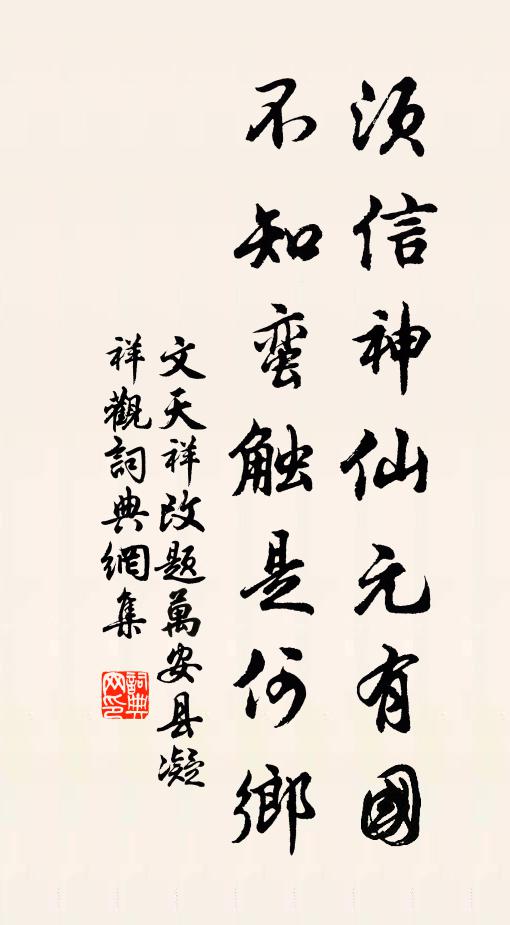 须信神仙元有國
不知蛮触是何鄉
文天祥改题萬安县凝
祥觀詞典網集
詞典网印